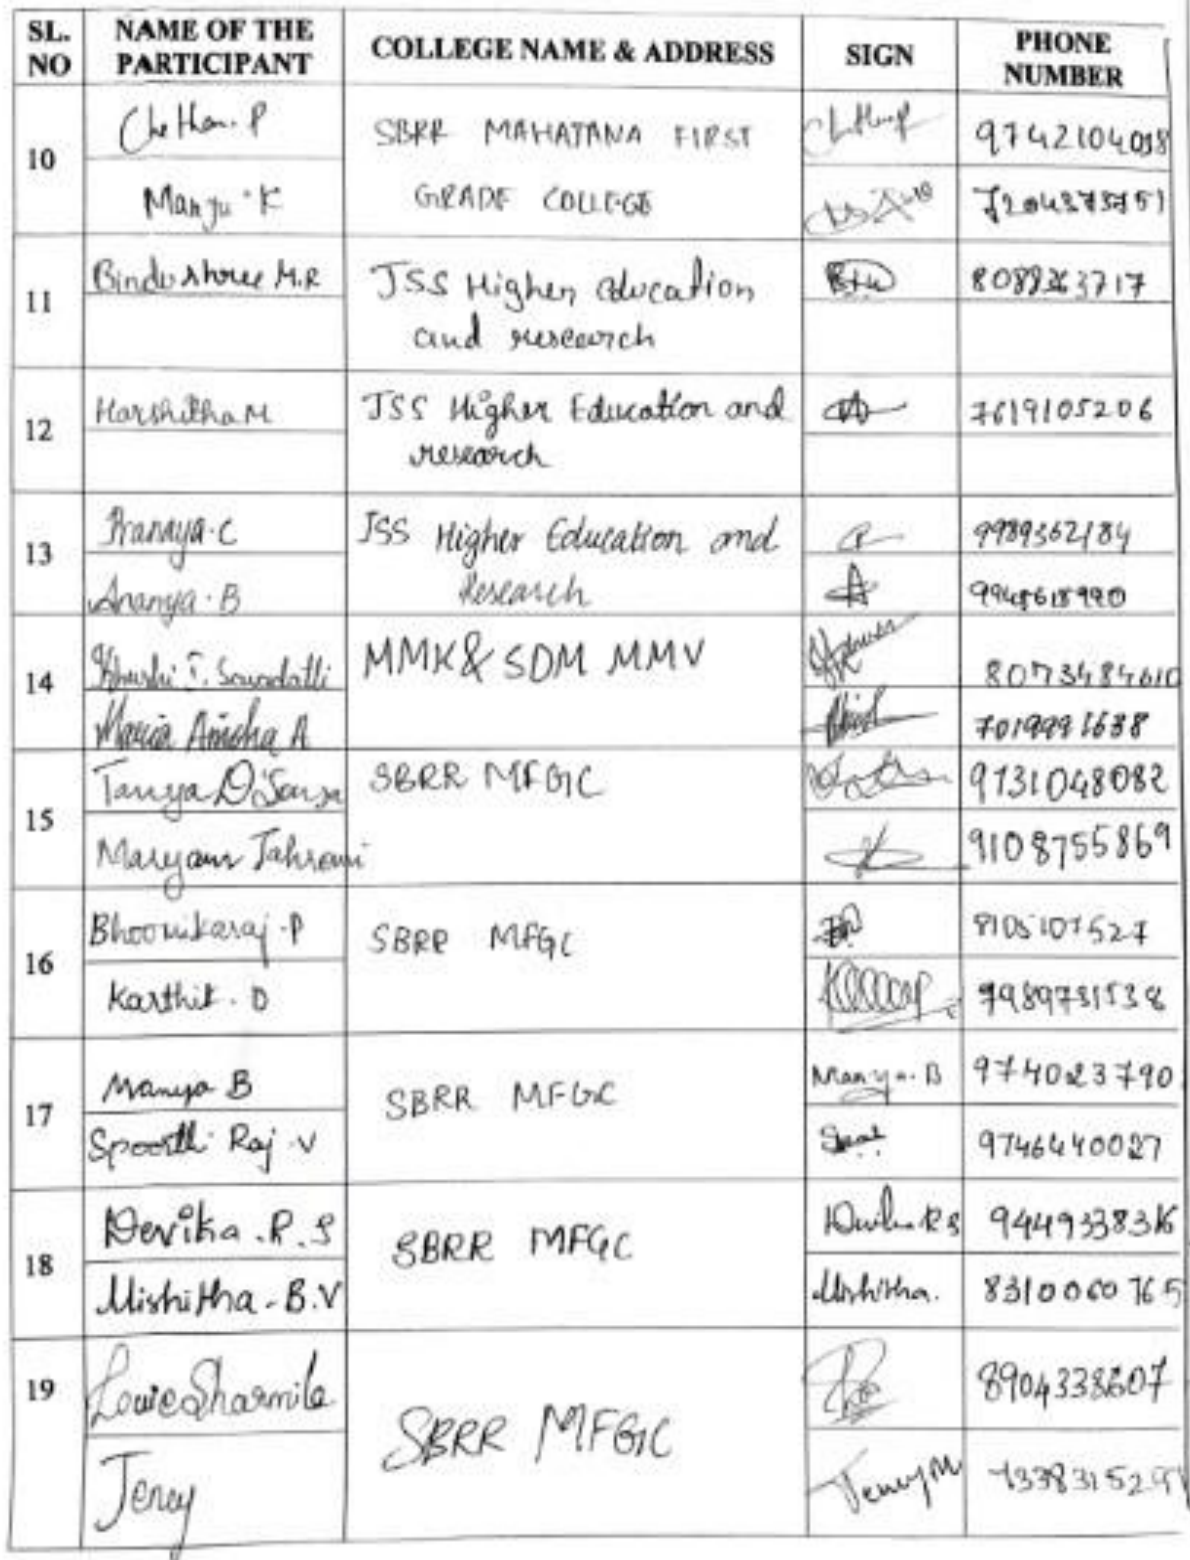 SL. NO NAME OF THE PARTICIPANT COLLEGE NAME & ADDRESS SIGN PHONE NUMBER
10 Chethan. P SBRR MAHAJANA FIRST
Manju. K GRADE COLLEGE
11 Bindushree M.R JSS Higher education
and research
12 Harshitha M JSS Higher Education and 7619105206
research
13 Pranaya. C JSS Higher Education and 9989362184
Ananya. B Research
14 Khushi T. MMK & SDM MMV 8073484610
Anisha A 7019991638
15 Taniya D'Souza SBRR MFGC 9731048082
Maryam 9108755869
16 Bhoomikaraj. P SBRR MFGC 8105107527
Karthik. D
17 Manya B SBRR MFGC Manya. B 9740223790
Spoorthi Raj. V 9746440027
18 Devika. R. S SBRR MFGC Devika R S 9449338316
Mishitha. B. V Mishitha. 8310060765
19 Louie Sharmila SBRR MFGC 8904338607
Jency Jency M